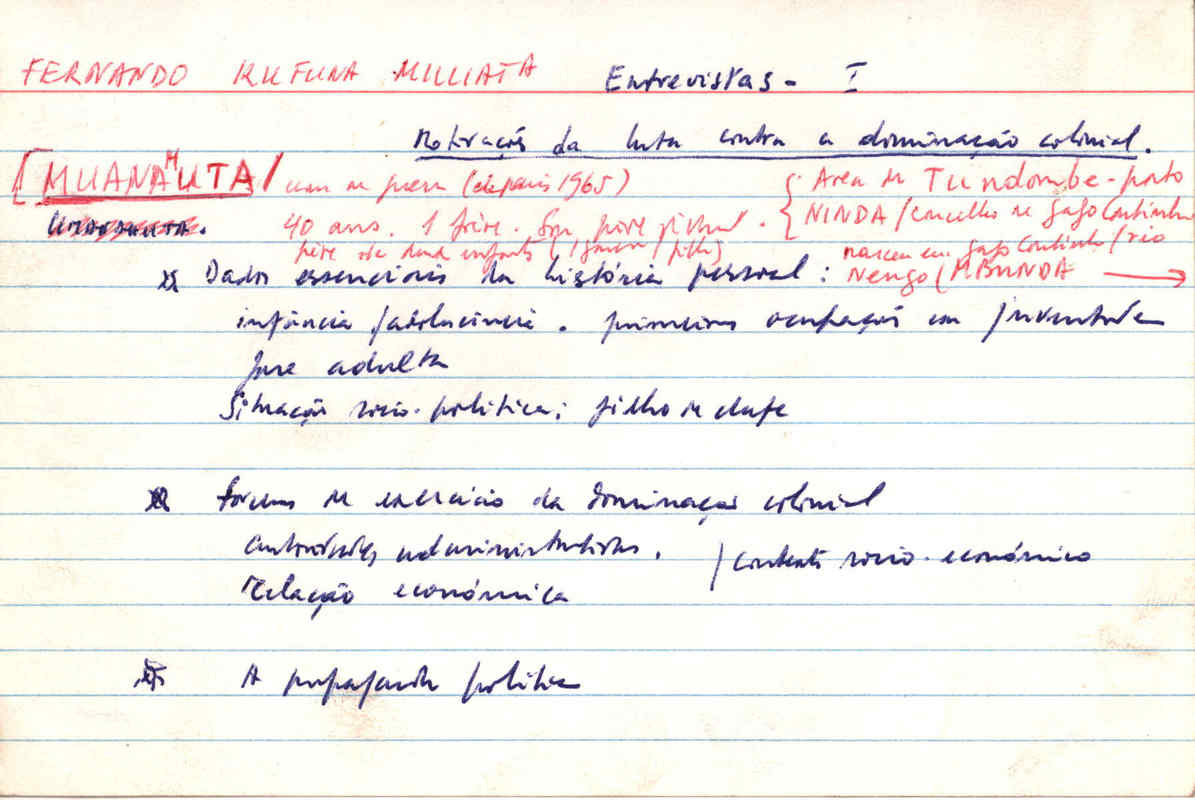 FERNANDO KUFUNA MULIATA Entrevistas - I
Motivações da luta contra a dominação colonial.
[MUANAHUTA/ nom de guerra (depuis 1965) { Area de Tundombe - perto
40 ans. 1 frère. Son père NINDA / concelho de Gago Coutinho
père de deux enfants (1 garçon / fille) nasceu em Gago Coutinho / rio
Dados essenciais da história pessoal: Nengo (MBUNDA →
infância / adolescência. primeiras ocupações em juventude
fase adulta
Situação socio-política: filho de chefe
Formas de exercício da dominação colonial
autoridades administrativas. / contexto socio-económico
relação económica
A propaganda política